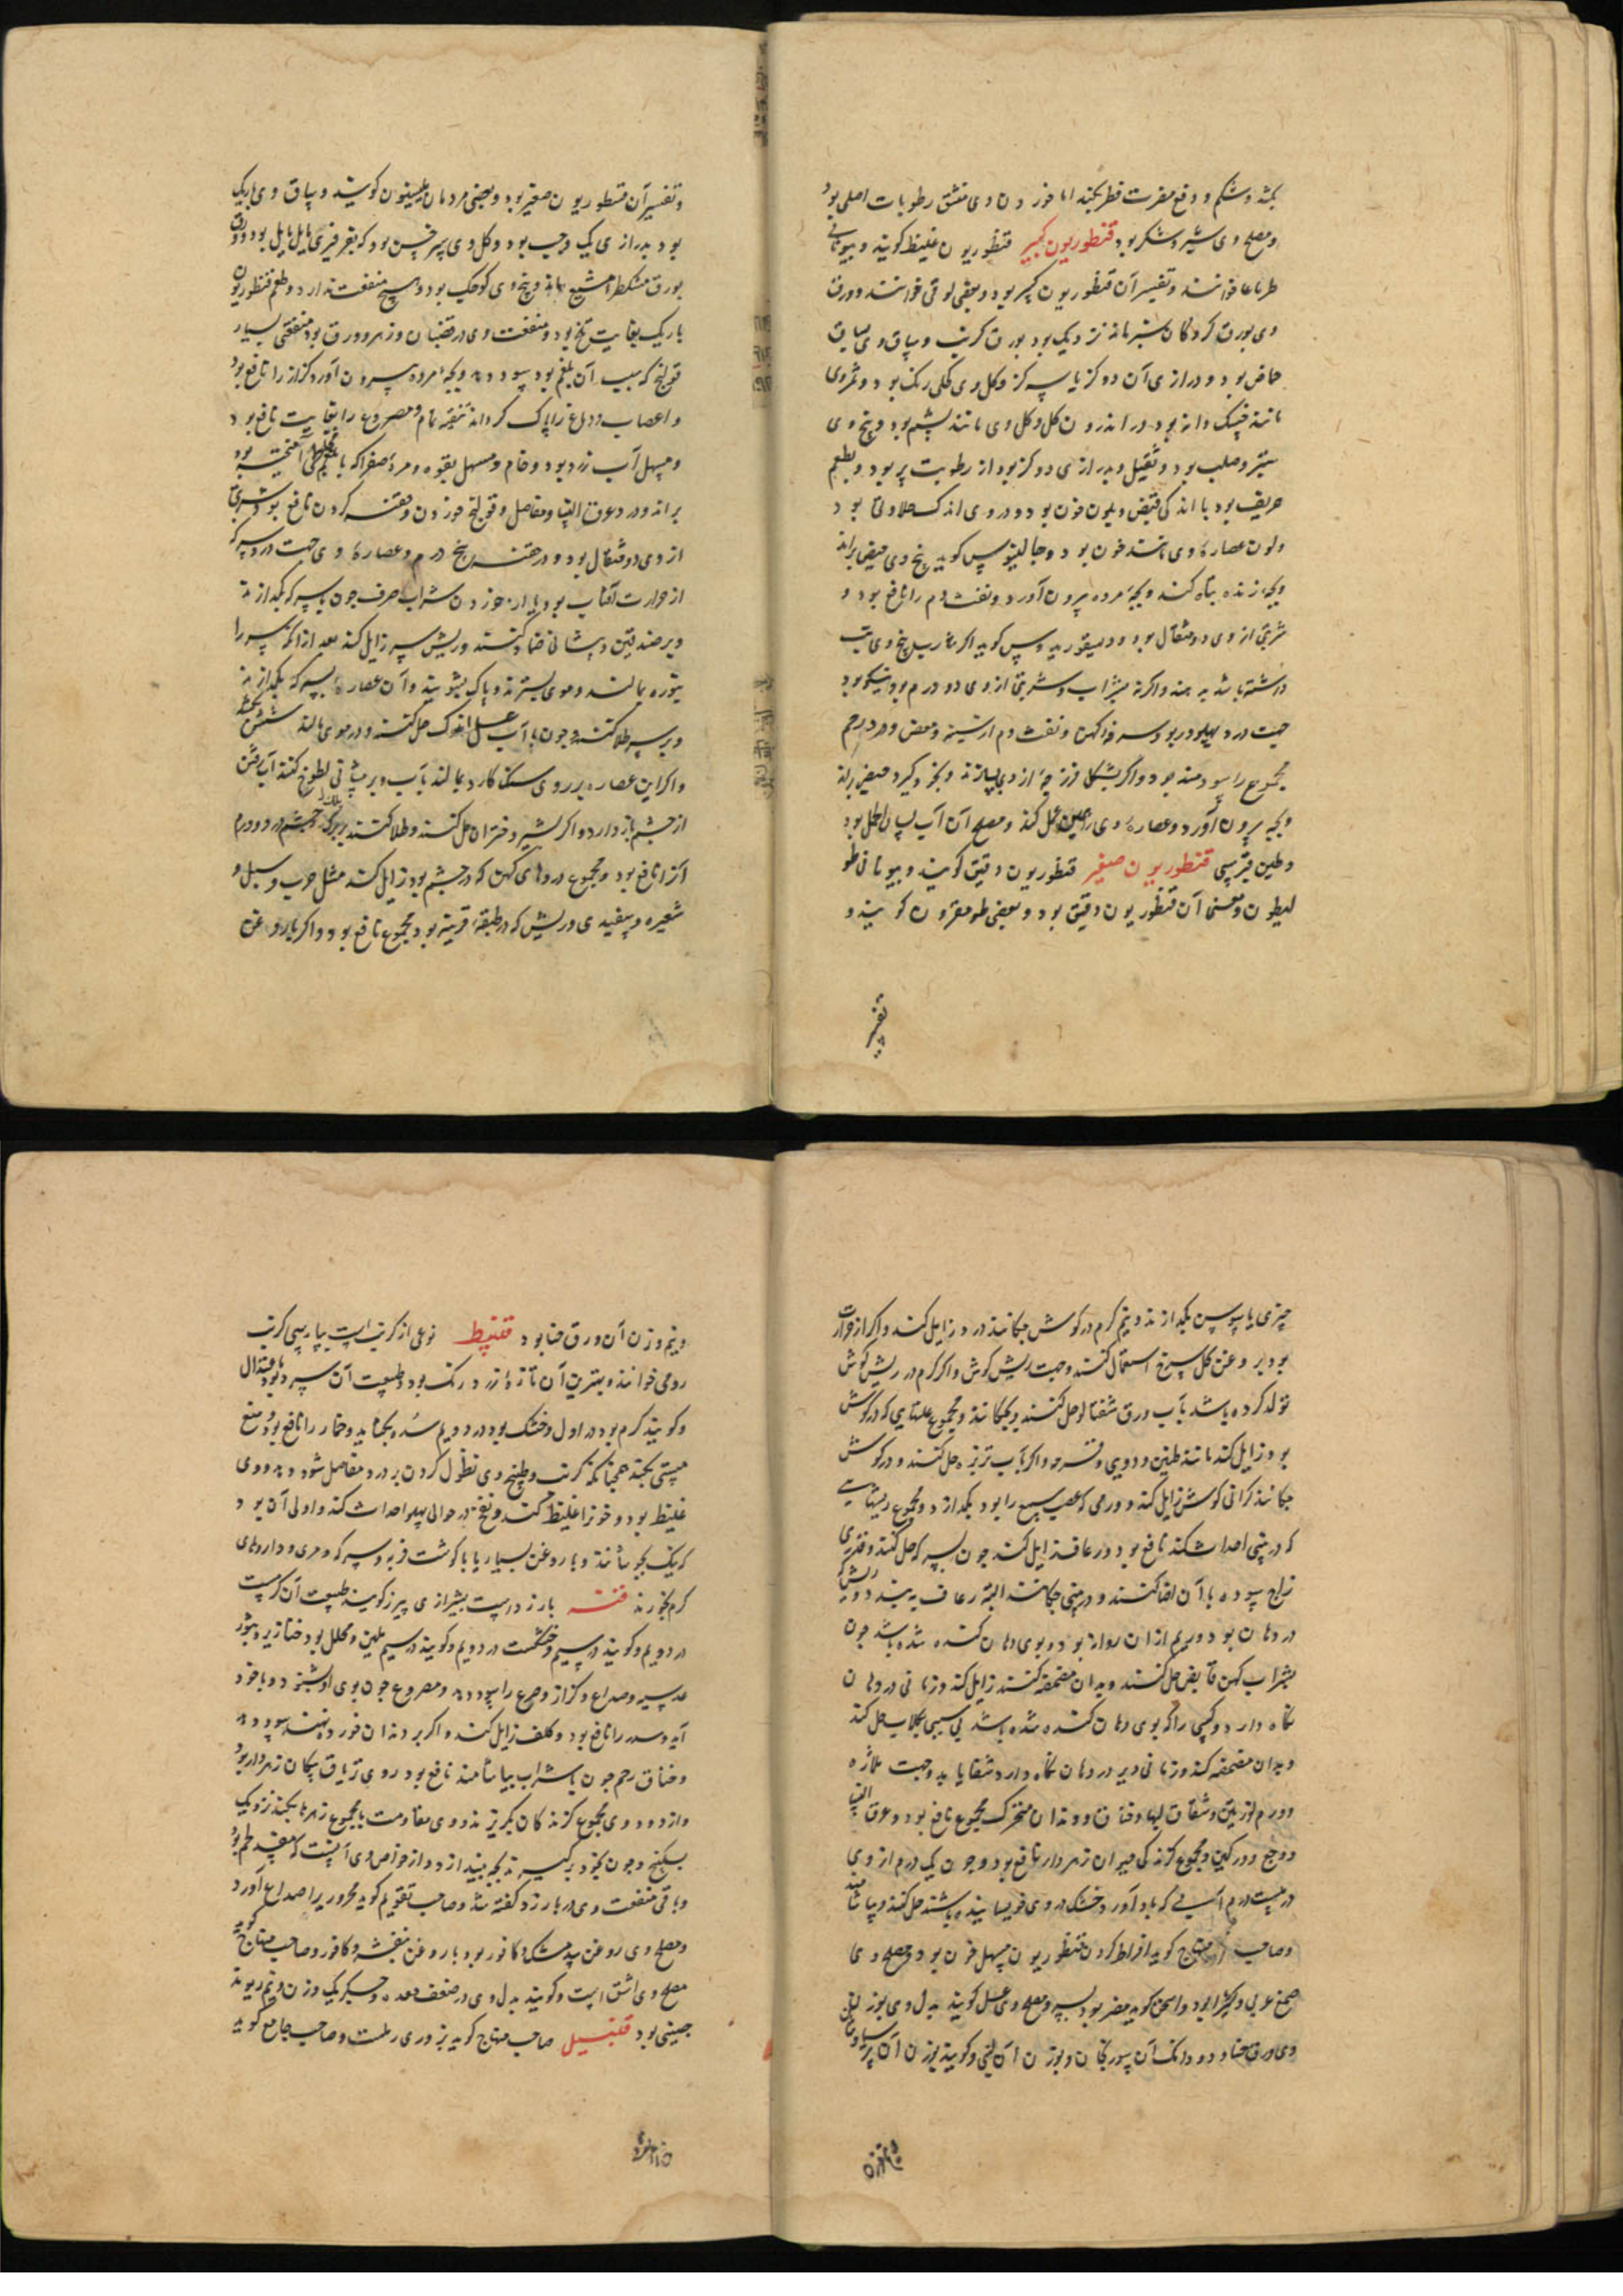 بکشد و شکم و دفع مضرت فطر بکند اما خوردن وی منشق رطوبات اصلی بود
و مصلح وی شیر و شکر بود قنطوریون کبیر قنطوریون غلیظ کویند و بیونانی
طرناعا خوانند و تفسیر آن قنطوریون کبیر بود و بعضی لوفی خوانند و ورق
وی بورق کردکان سبز ماند نزدیک بود بورق کرنب و ساق وی بساق
حماض بود و درازی آن دو کز یا سه کز و کل وی کحلی رنک بود و ثمر وی
مانند خسک دانه بود در اندرون کل و کل وی مانند پشم بود و بیخ وی
ستبر و صلب بود و ثقیل و بدرازی دو کز بود از رطوبت پر بود و بطعم
حریف بود با اندکی قبض و بلون خون بود و در وی اندک حلاوتی بود
و لون عصاره وی مانند خون بود و جالینوس کوید بیخ وی حیض براند
و بچه زنده تباه کند و بچه مرده بیرون آورد و نفث دم را نافع بود و
شربتی از وی دو مثقال بود و دیسقوریدوس کوید اکر مغاریل بیخ وی تب
داشته باشد بدهند و اکرنه بشراب و شربتی از وی دو درم بود نیکو بود
جهت درد پهلو و ربو و سرفه کهن و نفث دم از سینه و مغص و درد رحم
مجموع را سودمند بود و اکر بشکل فرزجه از وی بسازند و بخود برکیرد حیض براند
و بچه بیرون آورد و عصاره وی همین عمل کند و مصلح آن آب لسان الحمل بود
و طین قبرسی قنطوریون صغیر قنطوریون دقیق کویند و بیونانی طو
لیطون و معنی آن قنطوریون دقیق بود و بعضی طومقرون کویند و
تفسیر
و تفسیر آن قنطوریون صغیر بود و بعضی مردمان بلیسیون کویند و ساق وی باریک
بود بدرازی یک وجب بود و کل وی سرخ بود که بفرفیری مایل بود و ورق
بورق مشکطرامشیع ماند و بیخ وی کوچک بود و هیچ منفعت ندارد و طعم قنطوریون
باریک بغایت تلخ بود و منفعت وی در قضبان و زهر و ورق بود منفعتی بسیار
قولنج که سبب آن بلغم بود سود دهد و بچه مرده بیرون آورد کزاز را نافع بود
و اعصاب و دماغ را پاک کرداند تنقیه تمام و مصروع را بغایت نافع بود
و مسهل آب زرد بود و خام و مسهل بقوه و مره صفرا که با بلغم آمیخته بود
براند و درد عرق النسا و مفاصل و قولنج خوردن و حقنه کردن نافع بود و شربتی
از وی دو مثقال بود و در حقنه پنج درم و عصاره وی جهت درد سر که
از حرارت آفتاب بود یا از خوردن شراب صرف چون با سرکه بکدازند
و بر صدغین و پیشانی ضماد کنند و ریش سر زایل کند بعد از آنکه سر را
بنوره بمالند و موی بسترند و پاک بشویند و آن عصاره بسرکه بکدازند
و بر سر طلا کنند و چون با آب عسل اندک حل کنند و در موی مالند شپش بکشد
و اکر این عصاره بر روی سنک کارد بمالند بآب و بر پیشانی لطوخ کنند آب رفتن
از چشم باز دارد و اکر بشیر دختران حل کنند و طلا کنند بر چشم درد و ورم
آنرا نافع بود و مجموع دردهای کهن که در چشم بود زایل کند مثل جرب و سبل و
شعیره و سفیدی و ریش که در طبقه قرنیه بود مجموع نافع بود و اکر با روغن
چیزی با سوسن بکدازند و نیم کرم در کوش چکانند درد زایل کند و اکر از حرارت
بود بروغن کل سرخ استعمال کنند و جهت ریش کوش و اکر کرم در ریش کوش
تولد کرده باشد بآب ورق شفتالو حل کنند و بچکانند و مجموع علتهایی که در کوش
بود زایل کند مانند طنین و دوی و قرحه و اکر بآب ترب حل کنند و در کوش
چکانند کرانی کوش زایل کند و ورمی که در عصب سمع را بود بکدازد و مجموع ریشهایی
که در بینی احداث کند نافع بود و رعاف زایل کند چون بسرکه حل کنند و قدری
زاج سوده با آن اضافه کنند و در بینی چکانند البته رعاف ببندد و ریش که
در دهان بود و ریم از آن روان بود و بوی دهان کنده شده باشد چون
بشراب کهن قابض حل کنند و بدان مضمضه کنند زایل کند و زمانی در دهان
نکاه دارد و کسی را که بوی دهان کنده شده باشد بی سببی بکلاب حل کند
و بدان مضمضه کند و زمانی دیر در دهان نکاه دارد شفا یابد و جهت ملازه
و ورم لوزتین و شقاق لبها و خناق و دندان متحرک مجموع نافع بود و عرق النسا
و وجع ورکین و مجموع کزندکی حیوان زهردار نافع بود و چون یک درم از وی
در بیست درم آب که بادآورد خشک در وی خیسانیده باشند حل کنند و بیاشامند
و صاحب منهاج کوید افراط کردن قنطوریون مسهل خون بود و مصلح وی
صمغ عربی و کتیرا بود و اسحق کوید مضر بود بسپرز و مصلح وی عسل کویند بدل وی بوزن
وی ورق حنا و دو دانک آن سورنجان و بوزن آن لبنی و کویند بوزن آن برسیاوشان
و نیم وزن آن ورق حنا بود قنبیط نوعی از کرنب است بپارسی کرنب
رومی خوانند و بهترین آن تازه زرد رنک بود و طبیعت آن سرد بود باعتدال
و کویند کرم بود در اول و خشک بود در دویم سده بکشاید و خمار را نافع بود و منع
مستی بکند همچنانکه کرنب و طبیخ وی نطول کردن بر درد مفاصل سود دهد و وی
غلیظ بود و خونرا غلیظ کند و نفخ در حوالی پهلو احداث کند و اولی آن بود
که نیک بجوشانند و با روغن بسیار یا با کوشت فربه و سرکه و مری و داروهای
کرم بخورند قنه بارزد است بشیرازی بیرزد کویند طبیعت آن کرمست
در دویم و کویند در سیم و خشکست در دویم و کویند در سیم ملین و محلل بود خنازیر و بثور
عدسیه و صداع و کزاز و صرع را سود دهد و مصروع چون بوی او بشنود با خود
آید و سدر را نافع بود و کلف زایل کند و اکر بر دندان خورده نهند سود دهد
و خناق رحم چون با شراب بیاشامند نافع بود و وی تریاق پیکان زهردار بود
و از دود وی مجموع کزندکان بکریزند و وی مقاومت با مجموع زهرها بکند نزدیک
بسکبینج و چون بخود برکیرند بچه بیندازد و از خواص وی آنست که مفسد لحم بود
و باقی منفعت وی در بارزد کفته شد و صاحب تقویم کوید محرور را صداع آورد
و مصلح وی روغن بید مشک و کافور بود یا روغن بنفشه و کافور و صاحب منهاج کوید
مصلح وی اشق است و کویند بدل وی در ضعف معده و جکر یک وزن و نیم ریوند
چینی بود قنبیل صاحب منهاج کوید بزوری رملست و صاحب جامع کوید